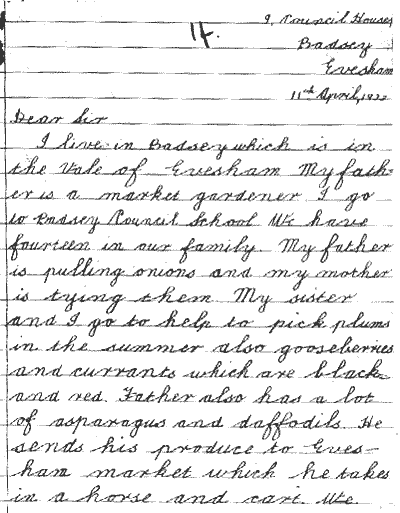 9, Council Houses
14.
Badsey
Evesham
11th April, 1922
Dear Sir
I live in Badsey which is in
the Vale of Evesham My fath-
er is a market gardener I go
to Badsey Council School We have
fourteen in our family My father
is pulling onions and my mother
is tying them My sister
and I go to help to pick plums
in the summer also gooseberries
and currants which are black
and red. Father also has a lot
of asparagus and daffodils. He
sends his produce to Eves-
ham market which he takes
in a horse and cart. We